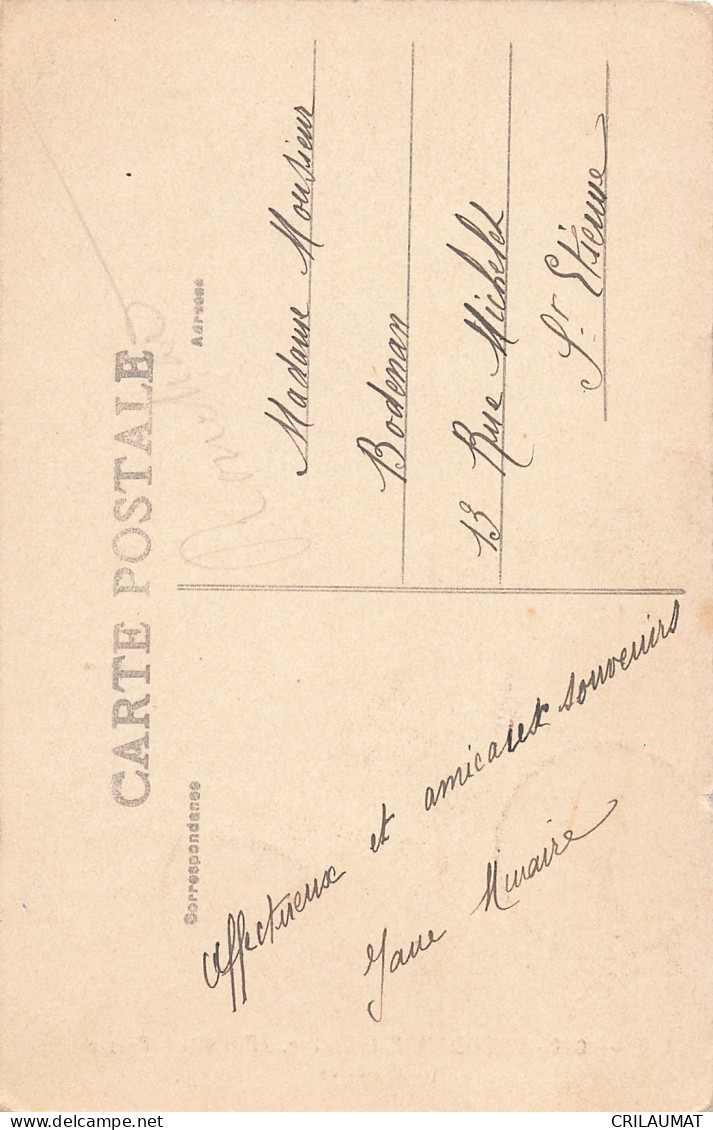 CARTE POSTALE
Correspondance
Affectueux et amicaux souvenirs
Jane
Adresse
Madame Monsieur
Bodenan
13 Rue Michelet
St. Etienne
CRILAUMAT